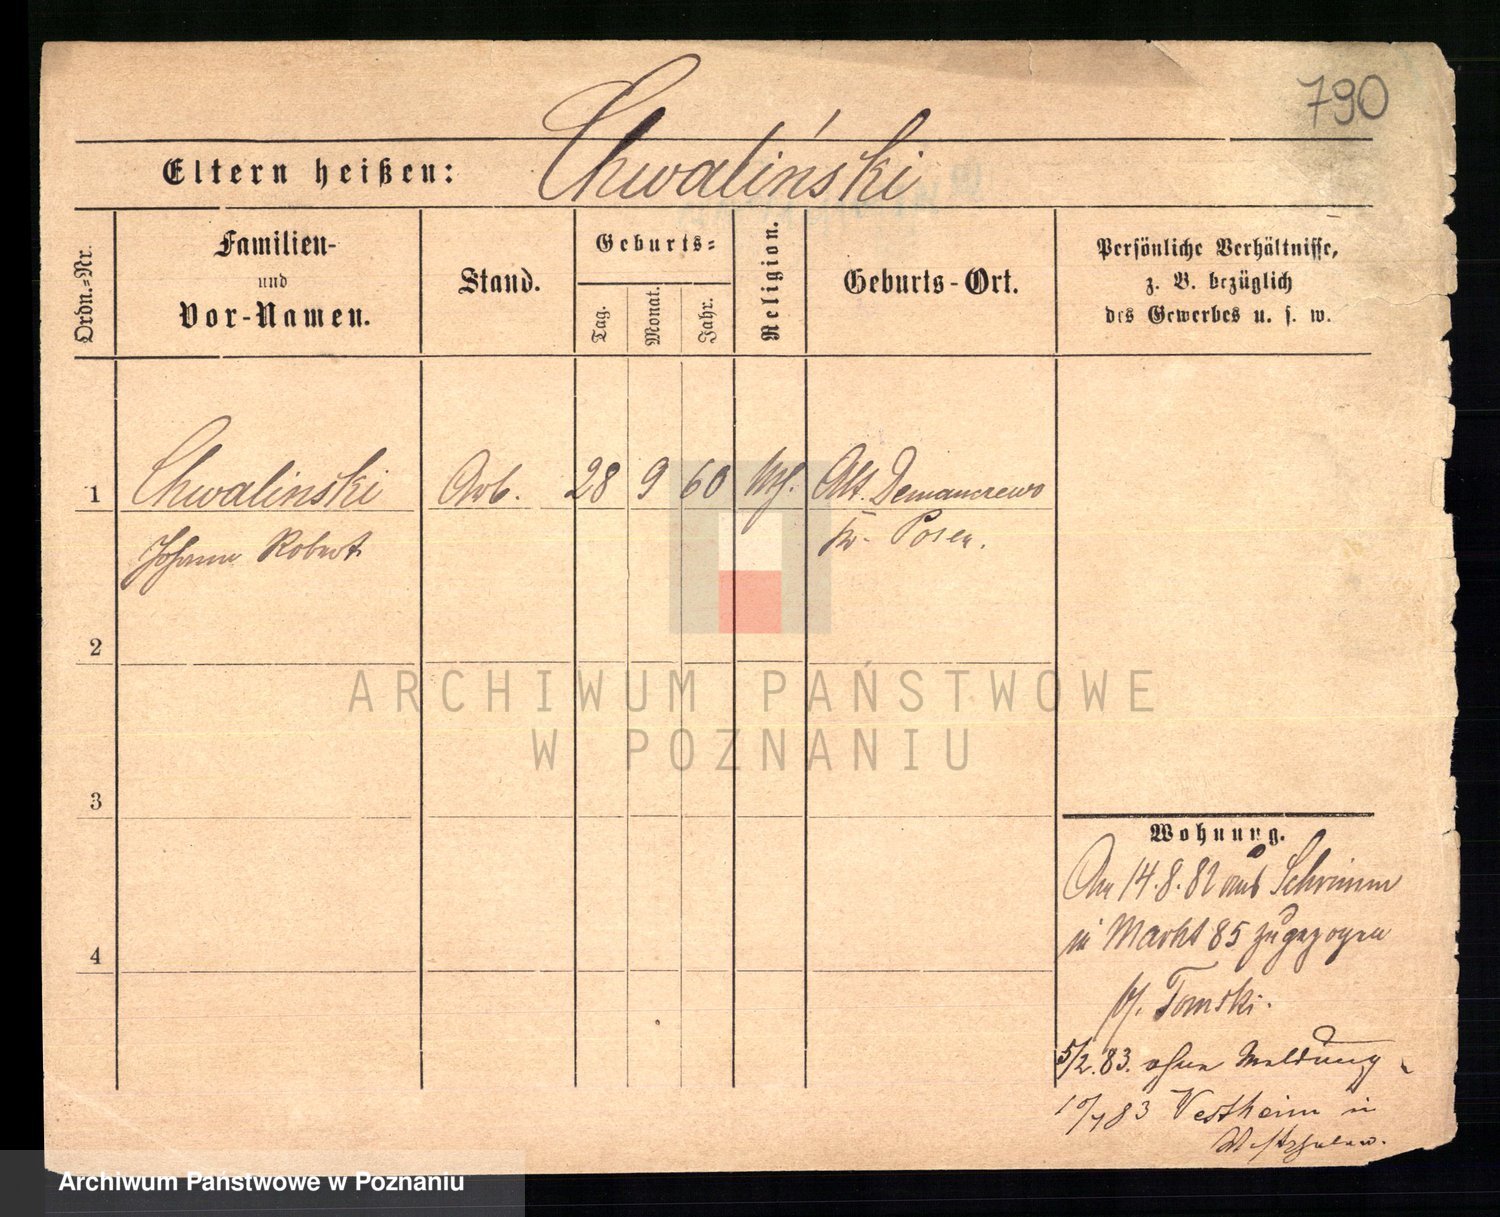 790
Eltern heißen: Chwaliński
Ordn.-Nr.
Familien-
und
Vor-Namen.
Stand.
Geburts-
Tag.
Monat.
Jahr.
Religion.
Geburts-Ort.
Persönliche Verhältnisse,
z. B. bezüglich
des Gewerbes u. s. w.
1 Chwalinski Arb. 28 9 60 Alt. Demanczewo
Johann Robert Kr. Posen.
2
3
4
Wohnung.
Am 14.8.82 aus Schrimm
in Markt 85 zugezogen
b/. Tomski.
5/2.83. ohne Meldung
83 Vestheim in
Westphalen.
ARCHIWUM PAŃSTWOWE
W POZNANIU
Archiwum Państwowe w Poznaniu